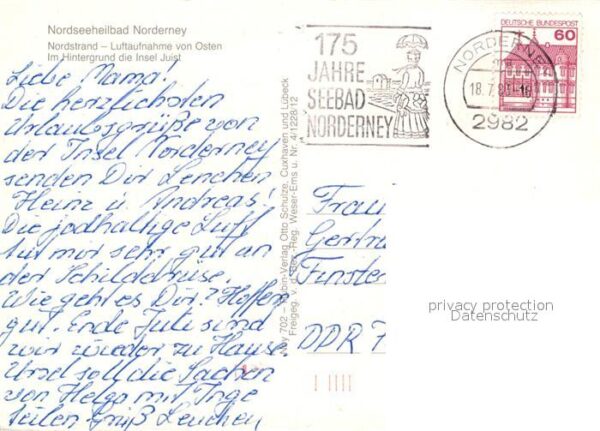 Nordseeheilbad Norderney
Nordstrand – Luftaufnahme von Osten
Im Hintergrund die Insel Juist
Liebe Mama!
Die herzlichsten
Urlaubsgrüße von
der Insel Norderney
senden Dir Lenchen
Heinz u. Andreas!
Die jodhaltige Luft
tut mir sehr gut an
der Schilddrüse.
Wie geht es Dir? Hoffen
gut. Ende Juli sind
wir wieder zu Hause.
Ursel soll die Sachen
von Helga mit Inge
teilen. Gruß Lenchen
Verlag Otto Schulze, Cuxhaven und Lübeck
Reg. Weser-Ems u. Nr. 4/1228/12
175
JAHRE
SEEBAD
NORDERNEY
NORDERNEY
18.7.
2982
DEUTSCHE BUNDESPOST
60
Frau
Gertru
Finste
DDR 7
privacy protection
Datenschutz